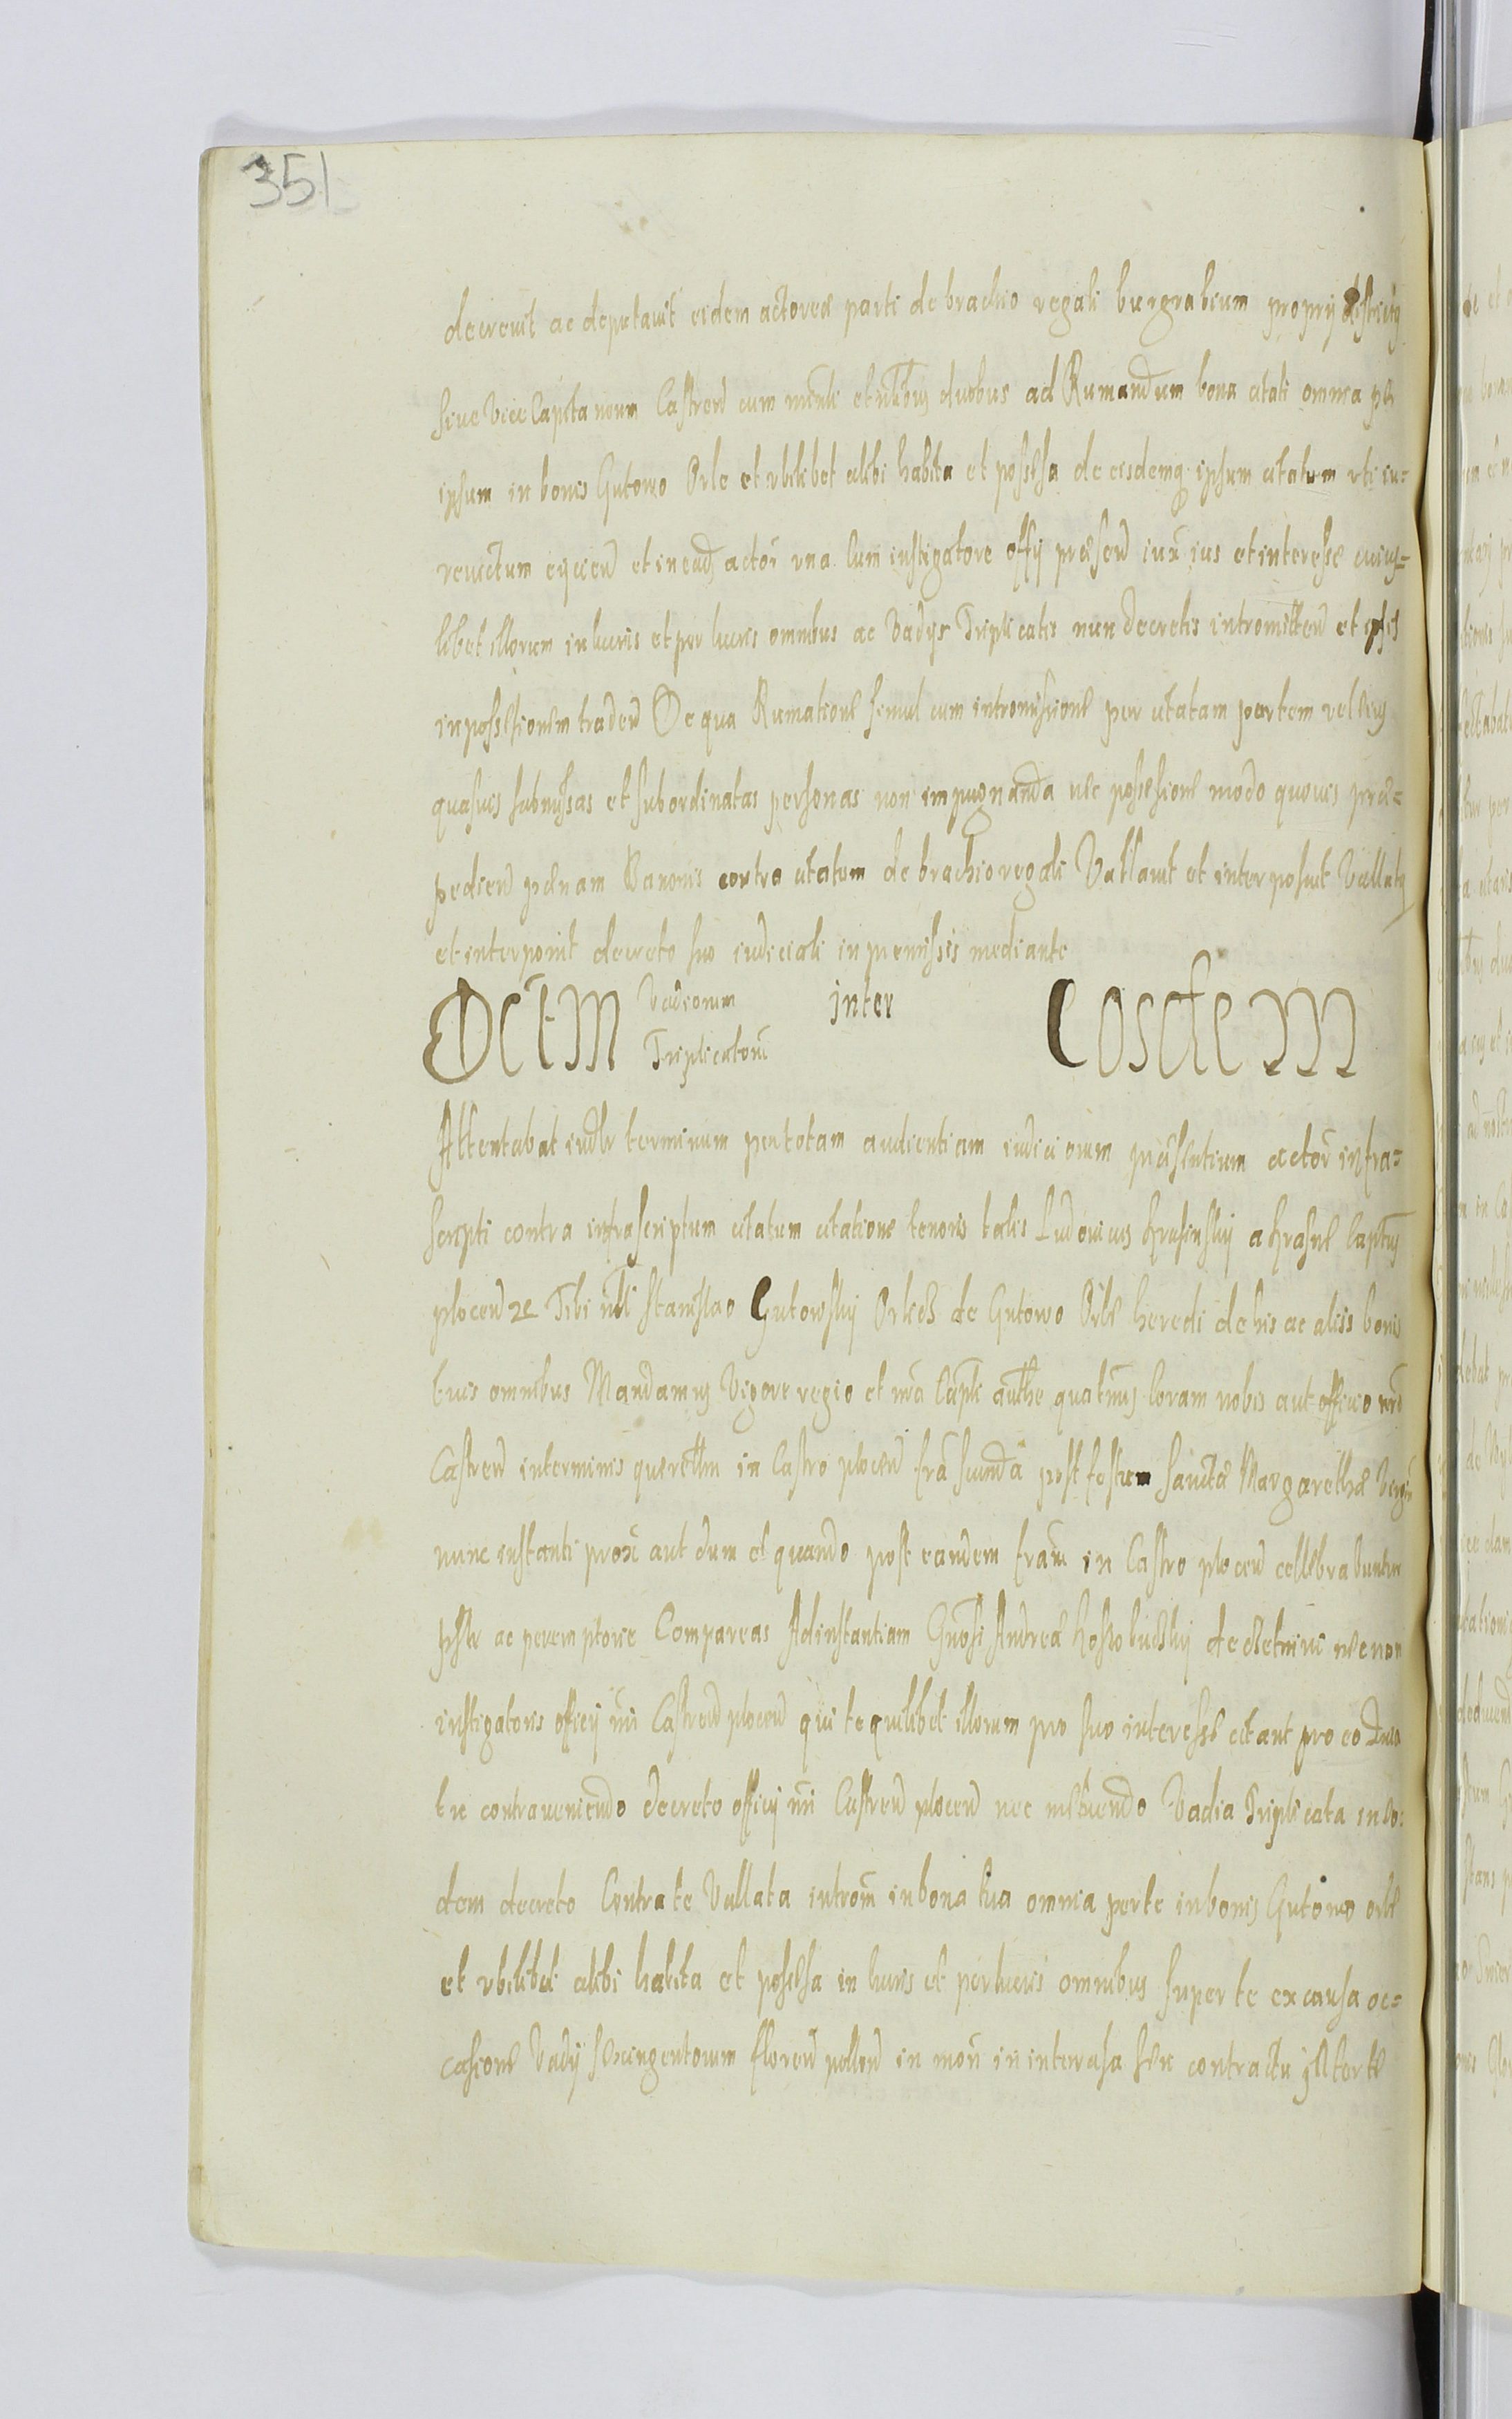 351
decrevit ac deputavit eidem actoreæ parti de brachio regali burgrabium proprij districtus
sive Vice Capitaneum Castren cum mnli et nobilibus duobus ad Rumandum bona citati omnia per
ipsum in bonis Gutowo Orle et ubilibet alibi habita et possessa de eisdemq ipsum citatum uti iu=
revictum eijciend et in ead actor una Cum instigatore officij præsend iux ius et interesse cuius=
libet illorum in lucris et per lucris omnibus ac Vadijs Triplicatis nun decretis intromittend et ipsis
in possessionem tradend De qua Rumatione simul cum intromissione per citatam partem vel eius
quasuis submissas et subordinatas personas non impugnanda nec possessione modo quovis præ=
pediend pænam Banonis contra citatum de brachio regali Vallavit et interposuit Vallatq
et interponit decreto suo iudiciali in premissis mediante
Dctm Vadiorum Triplicatorum inter Eosdem
Attentabat iudlr terminum per totam audientiam iudiciorum præsentium actor infra=
scripti contra infrascriptum citatum citatione tenoris talis Ludovicus Krasinskij a Krasne Capitnus
plocen &c Tibi nbli Stanislao Gutowskij Orlicz de Gutowo Orle heredi de his ac aliis bonis
tuis omnibus Mandamus Vigore regio et nra Capli authe quatinus Coram nobis aut officio nro
Castren in terminis querellm in Castro plocen fra scunda post festum Sanctæ Margarethæ Virginis
nunc instanti prox aut dum et quando post eandem fram in Castro plocen cellebrabuntur
pslr ac peremptorie Compareas Ad instantiam Gnosi Andreæ Kossobudskij de necnon
instigatoris officij nri Castren plocen qui te quilibet illorum pro suo interesse citant pro eo Quia
tu contraveniendo decreto officij nri Castren plocen nec metuendo Vadia Triplicata in eo=
dem decreto Contra te Vallata introm in bona tua omnia per te in bonis Gutowo orle
et ubilibet alibi habita et possessa in lucris et perlucris omnibus super te ex causa oc=
casione Vadij sexingentorum floren pollon in mon in interursa seu contractu